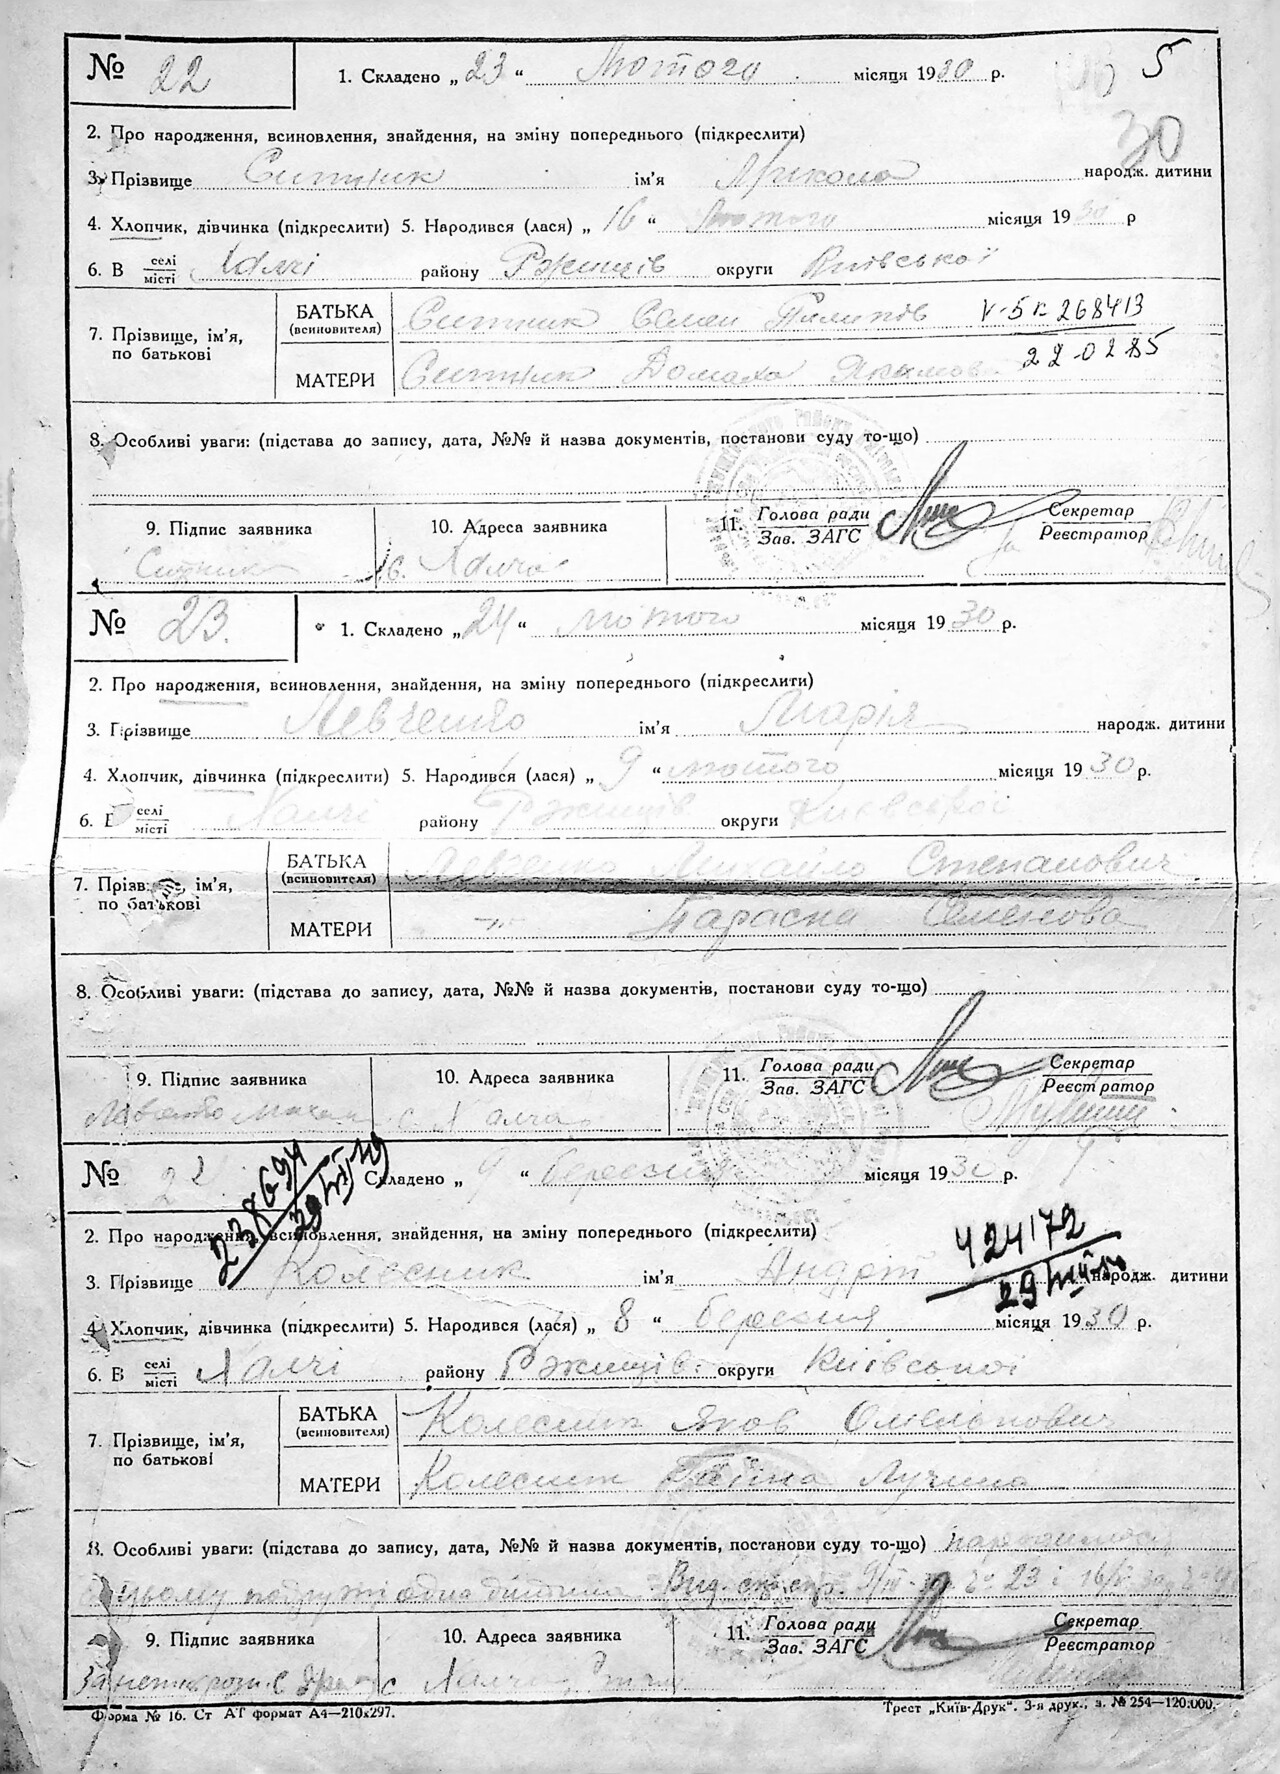 № 22 1. Складено „ 23 “ Лютого місяця 1930 р. 5
30
2. Про народження, всиновлення, знайдення, на зміну попереднього (підкреслити)
3. Прізвище Ситник ім'я Микола народж. дитини
4. Хлопчик, дівчинка (підкреслити) 5. Народився (лася) „ 16 “ Лютого місяця 1930 р
6. В селі місті Халчі району Ржищів округи Київської
7. Прізвище, ім'я, по батькові
БАТЬКА (всиновителя) Ситник Семен Пилипов V-БК 268413
МАТЕРИ Ситник Домаха Якимов 22-02 85
8. Особливі уваги: (підстава до запису, дата, №№ й назва документів, постанови суду то-що)
9. Підпис заявника 10. Адреса заявника 11. Голова ради Зав. ЗАГС Секретар Реєстратор
Ситник с. Халча
№ 23. 1. Складено „ 24 “ лютого місяця 1930 р.
2. Про народження, всиновлення, знайдення, на зміну попереднього (підкреслити)
3. Прізвище Левченко ім'я Марія народж. дитини
4. Хлопчик, дівчинка (підкреслити) 5. Народився (лася) „ 9 “ лютого місяця 1930 р.
6. В селі місті Халчі району Ржищів округи Київської
7. Прізвище, ім'я, по батькові
БАТЬКА (всиновителя) Левченко Михайло Степанович
МАТЕРИ —„— Параска Семенова
8. Особливі уваги: (підстава до запису, дата, №№ й назва документів, постанови суду то-що)
9. Підпис заявника 10. Адреса заявника 11. Голова ради Зав. ЗАГС Секретар Реєстратор
Левченко с Халча
№ Складено „ 9 “ березня місяця 1930 р.
238694
2. Про народження, всиновлення, знайдення, на зміну попереднього (підкреслити)
424172
3. Прізвище Колесник ім'я Андрій народж. дитини
4. Хлопчик, дівчинка (підкреслити) 5. Народився (лася) „ 8 “ березня місяця 1930 р.
6. В селі місті Халчі району Ржищів. округи Київської
7. Прізвище, ім'я, по батькові
БАТЬКА (всиновителя) Колесник Яков Омелянович
МАТЕРИ Колесник Ганна Лучина
8. Особливі уваги: (підстава до запису, дата, №№ й назва документів, постанови суду то-що)
одна дитина
9. Підпис заявника 10. Адреса заявника 11. Голова ради Зав. ЗАГС Секретар Реєстратор
с Халча
Форма № 16. Ст АГ формат А4—210х297. Трест „Київ-Друк“. 3-я друк., з. № 254—120.000.